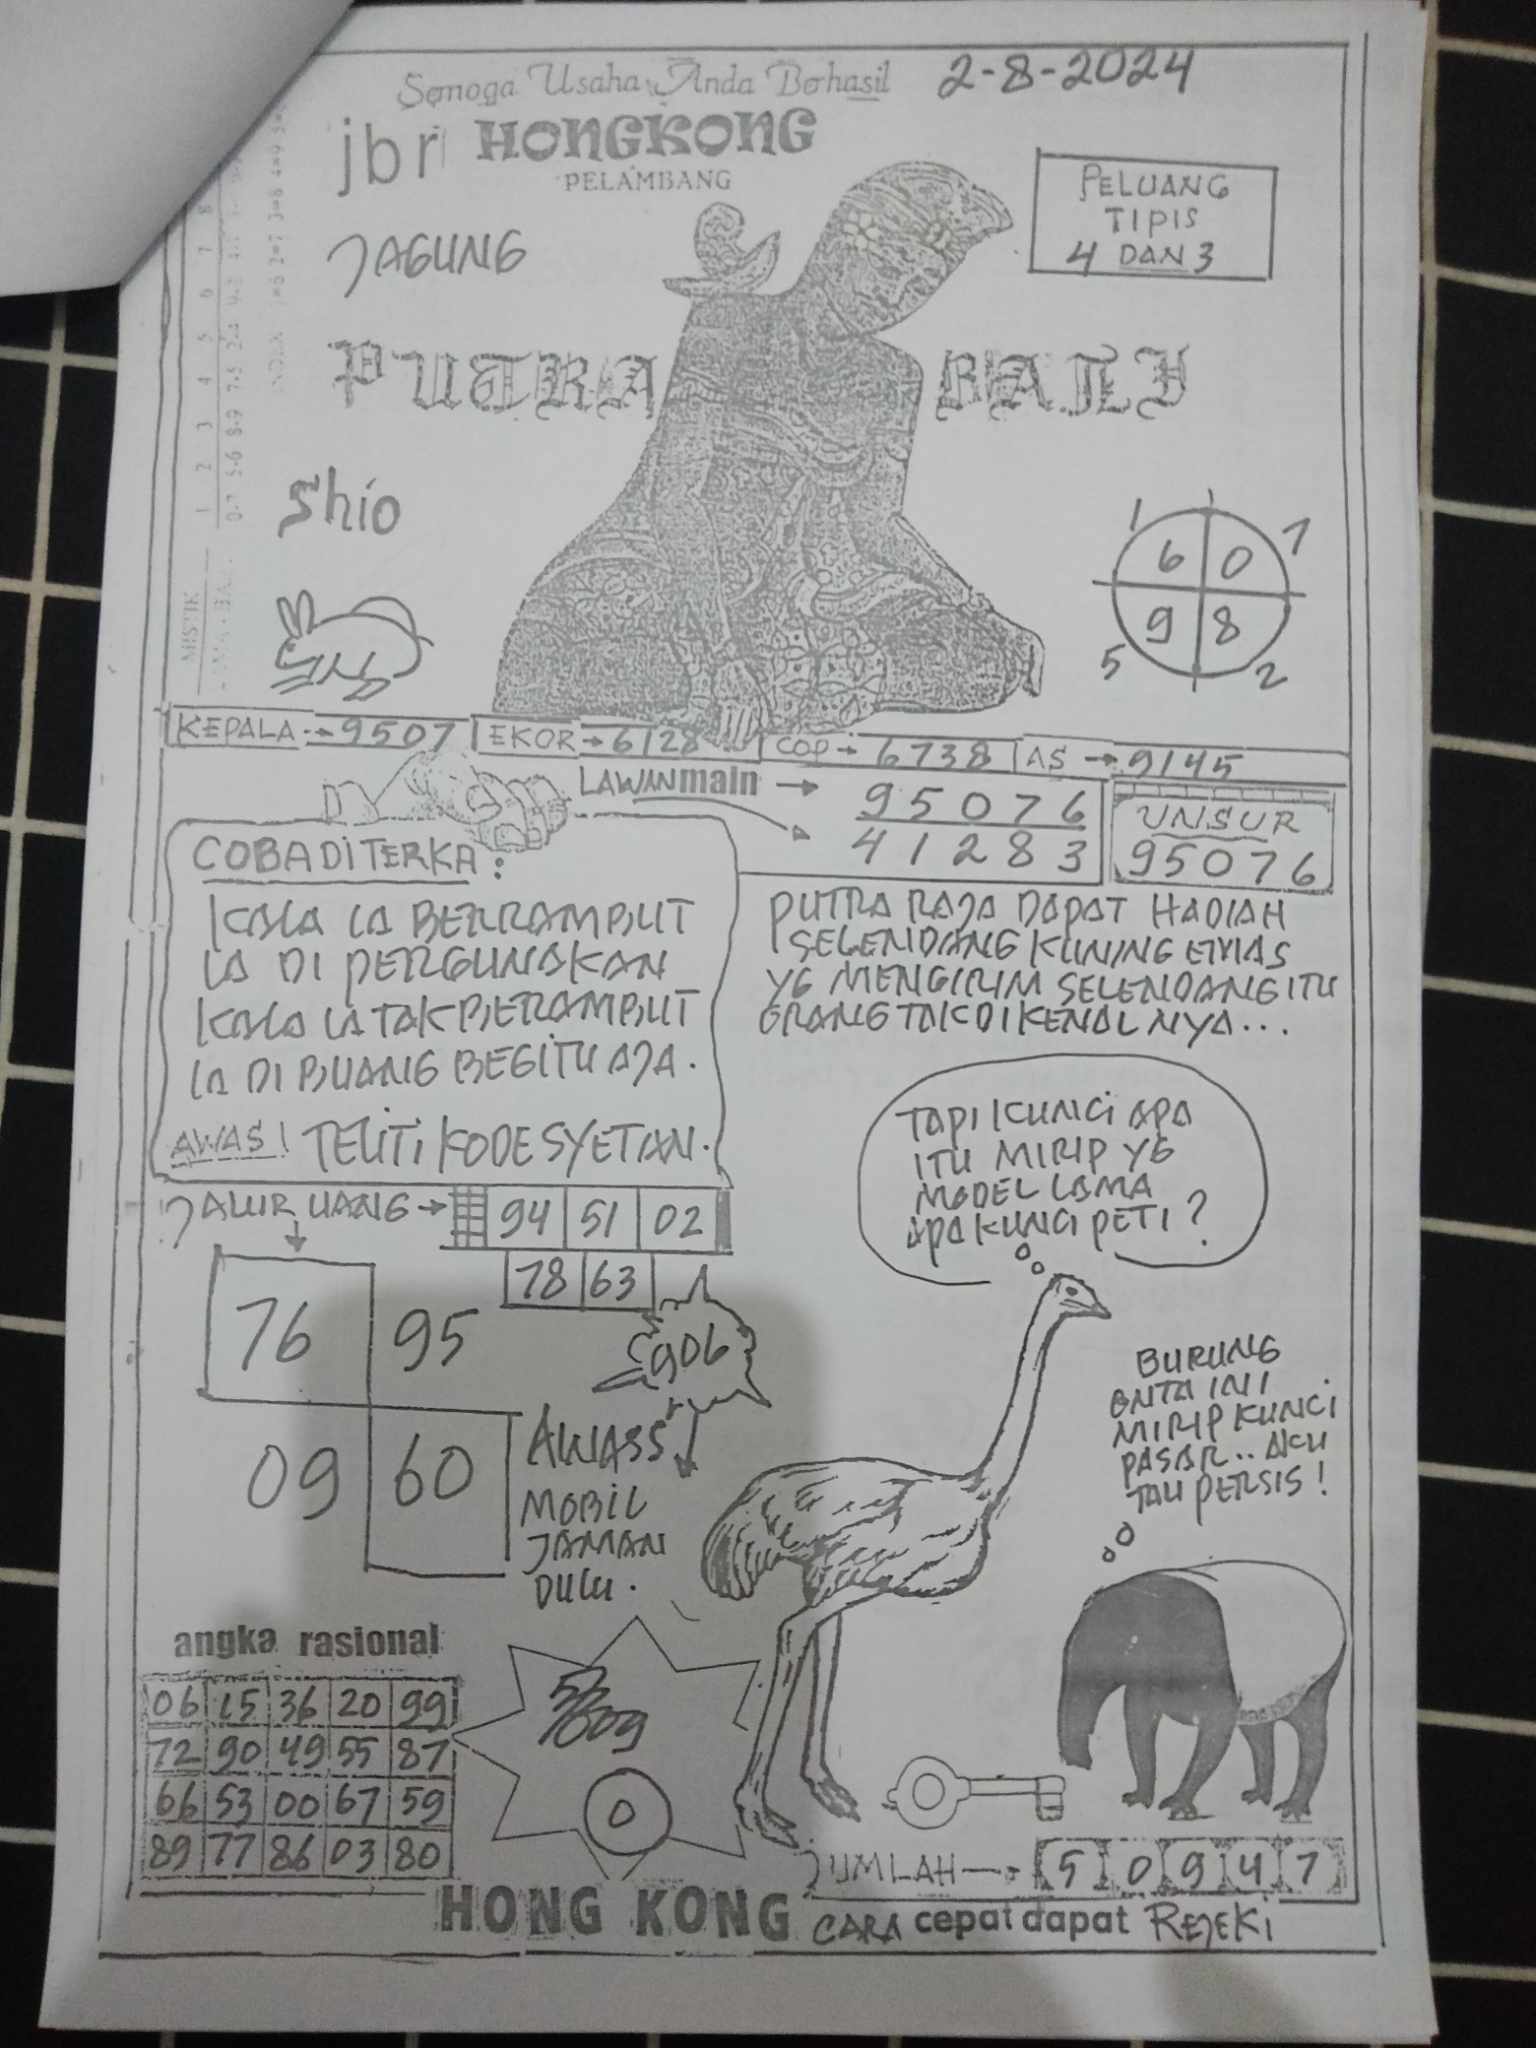 Semoga Usaha Anda Berhasil
2-8-2024
jbr HONGKONG
PELAMBANG
PELUANG
TIPIS
4 DAN 3
JAGUNG
PUTRA BALI
Shio
MISTIK
1 2 3 4 5 6 7 8
0-7 5-6 8-9 7-5 2-4
1 7
6 0
9 8
5 2
KEPALA → 9507
EKOR → 6128
COP → 6738
AS → 9145
LAWAN main → 95076
41283
UNSUR
95076
COBA DI TERKA :
KALA IA BERRAMBUT
IA DI PERGUNAKAN
KALA IA TAK BERAMBUT
IA DI BUANG BEGITU AJA.
AWAS! TELITI KODE SYETAN.
PUTRA RAJA DAPAT HADIAH
SELENDANG KUNING EMAS
YG MENGIRIM SELENDANG ITU
ORANG TAK DI KENAL NYA...
TAPI KUNCI APA
ITU MIRIP YG
MODEL LAMA
APA KUNCI PETI ?
JALUR UANG → 94 51 02
78 63
76 95
09 60
906
AWASS
MOBIL
JAMAN
DULU.
BURUNG
ONTA INI
MIRIP KUNCI
PASAR.. AKU
TAU PERSIS !
angka rasional
06 15 36 20 99
72 90 49 55 87
66 53 00 67 59
89 77 86 03 80
0
JUMLAH → 5 0 9 4 7
HONG KONG CARA cepat dapat REJEKI